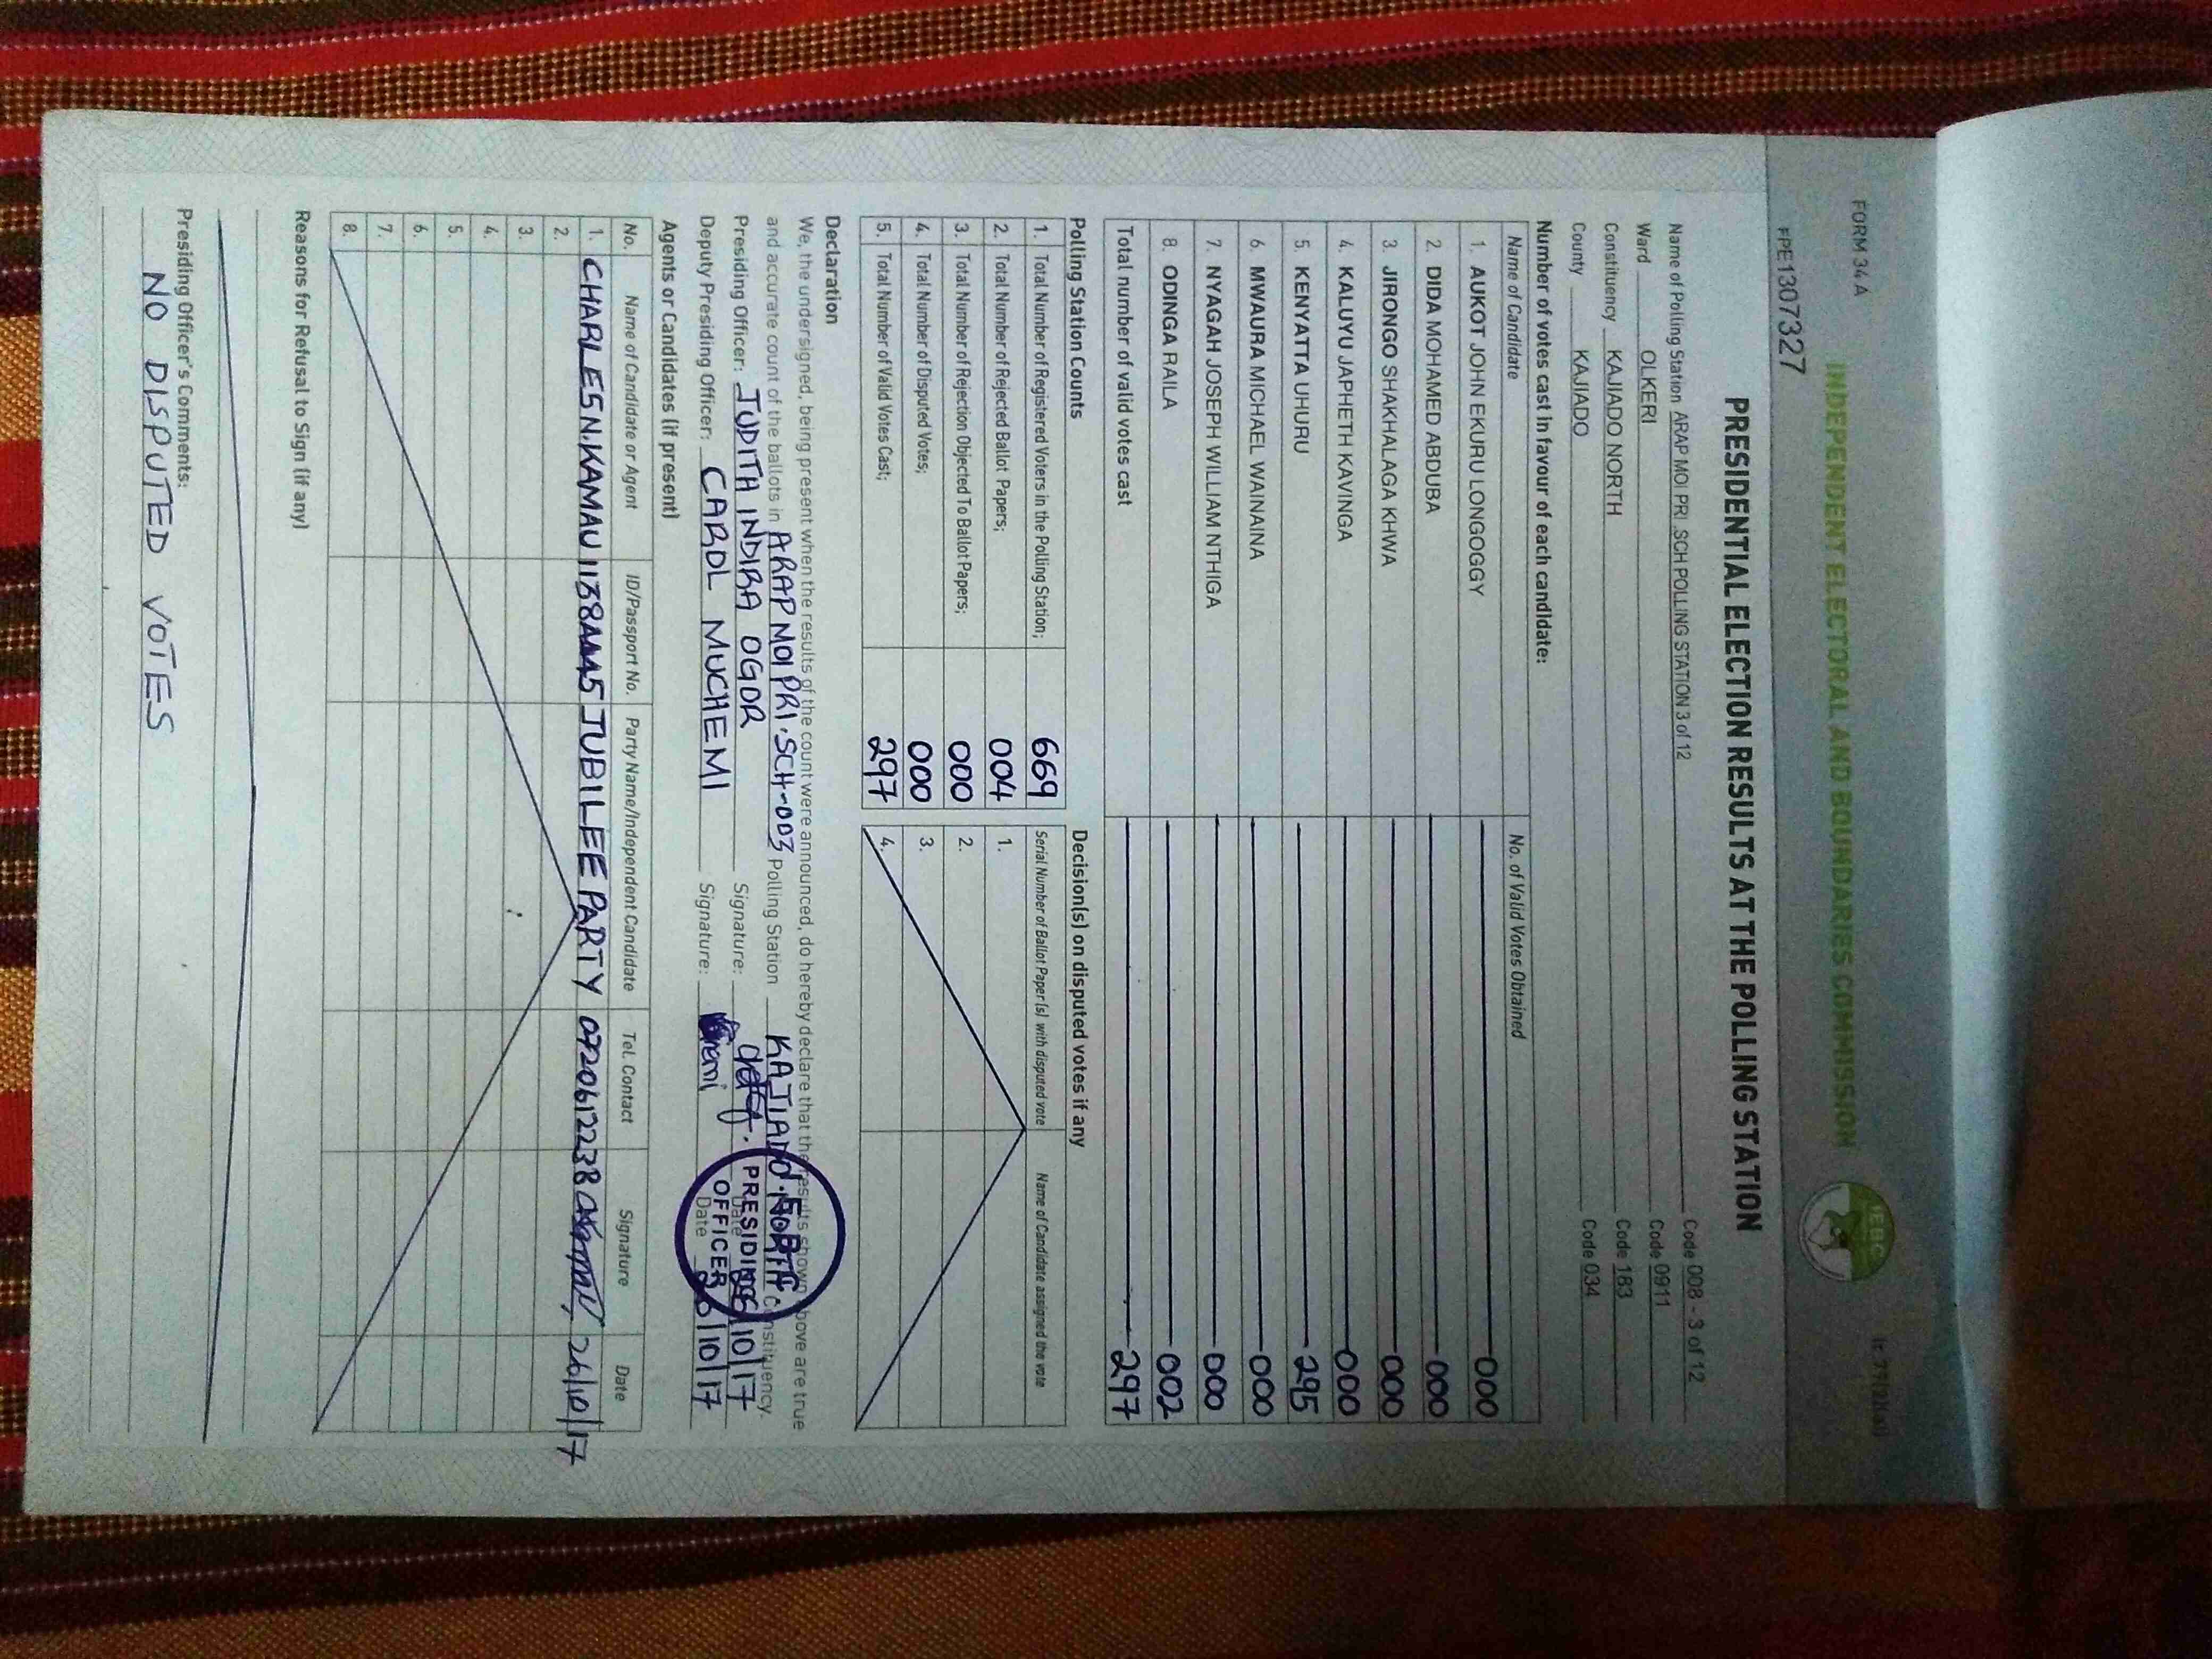 FORM 34A
INDEPENDENT ELECTORAL AND BOUNDARIES COMMISSION
IEBC
PE1307327
PRESIDENTIAL ELECTION RESULTS AT THE POLLING STATION
Name of Polling Station ARAP MOI PRI .SCH POLLING STATION 3 of 12 Code 008 - 3 of 12
Ward OLKERI Code 0911
Constituency KAJIADO NORTH Code 183
County KAJIADO Code 034
Number of votes cast in favour of each candidate:
Name of Candidate No. of Valid Votes Obtained
1. AUKOT JOHN EKURU LONGOGGY 000
2. DIDA MOHAMED ABDUBA 000
3. JIRONGO SHAKHALAGA KHWA 000
4. KALUYU JAPHETH KAVINGA 000
5. KENYATTA UHURU 295
6. MWAURA MICHAEL WAINAINA 000
7. NYAGAH JOSEPH WILLIAM NTHIGA 000
8. ODINGA RAILA 002
Total number of valid votes cast 297
Polling Station Counts Decision(s) on disputed votes if any
1. Total Number of Registered Voters in the Polling Station; 669 Serial Number of Ballot Paper(s) with disputed vote Name of Candidate assigned the vote
2. Total Number of Rejected Ballot Papers; 004 1.
3. Total Number of Rejection Objected To Ballot Papers; 000 2.
4. Total Number of Disputed Votes; 000 3.
5. Total Number of Valid Votes Cast; 297 4.
Declaration
We, the undersigned, being present when the results of the count were announced, do hereby declare that the results shown above are true
and accurate count of the ballots in ARAP MOI PRI. SCH-003 Polling Station KAJIADO NORTH Constituency.
Presiding Officer: JUDITH INDIRA OGOR Signature: Date 26/10/17
Deputy Presiding Officer: CAROL MUCHEMI Signature: Date 26/10/17
PRESIDING
OFFICER
Agents or Candidates (if present)
No. Name of Candidate or Agent ID/Passport No. Party Name/Independent Candidate Tel. Contact Signature Date
1. CHARLES N. KAMAU JUBILEE PARTY 0720612238 26/10/17
2.
3.
4.
5.
6.
7.
8.
Reasons for Refusal to Sign (if any)
Presiding Officer's Comments:
NO DISPUTED VOTES